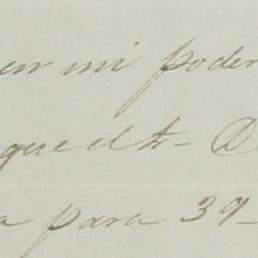 en mi poder
que el Sr. D
a para 39-